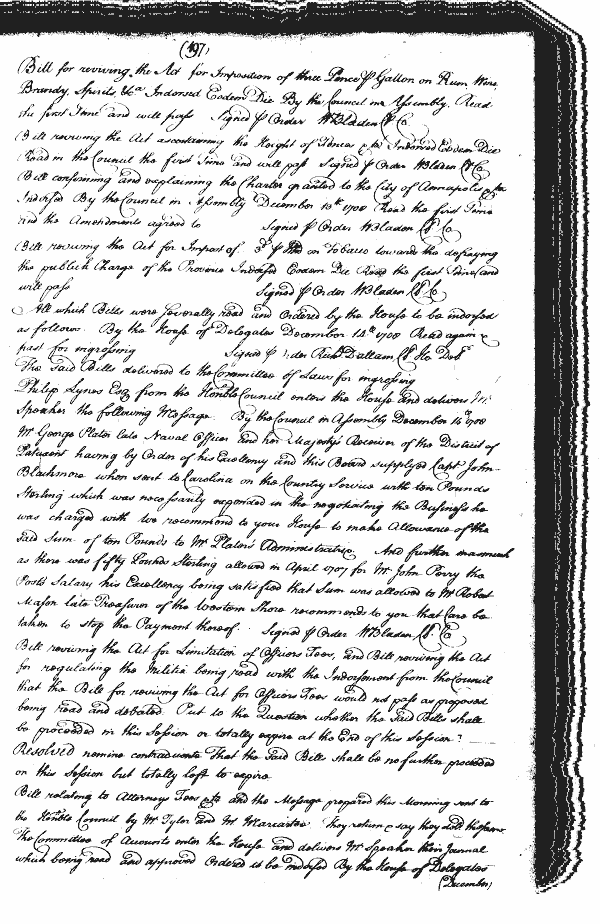 (497)
Bill for reviving the Act for Imposition of three Pence P Gallon on Rum Wine,
Brandy, Spirits &ca Indorsed Eodem Die By the Council in Assembly. Read
the first Time and will pass Signed P Order WBladen Cl Co
Bill reviving the Act ascertaining the Height of Fences &ca Indorsed Eodem Die
Read in the Council the first Time and will pass Signed P Order WBladen Cl Co
Bill confirming and explaining the Charter granted to the City of Annapolis &ca
Indorsed By the Council in Assembly December 13th 1708 Read the first Time
and the Amendments agreed to Signed P Order WBladen Cl Co
Bill reviving the Act for Impost of 3d P on Tobacco towards the defraying
the publick Charge of the Province Indorsed Eodem Die Read the first Time and
will pass Signed P Order WBladen Cl Co
All which Bills were severally read and Ordered by the House to be indorsed
as follows. By the House of Delegates December 14th 1708 Read again &
past for ingrossing Signed P Order Richd Dallam Cl Ho Delt
The said Bills delivered to the Committee of Laws for ingrossing
Philip Lynes Esq from the Honble Council enters the House and delivers Mr
Speaker the following Message. By the Council in Assembly December 14th 1708
Mr George Plater late Naval Officer and her Majestys Receiver of the District of
Patuxent having by Order of his Excellency and this Board supplyed Capt John
Blackmore when sent to Carolina on the Country Service with ten Pounds
Sterling which was necessarily expended in the negotiating the Business he
was charged with We recommend to your House to make Allowance of the
said Sum of ten Pounds to Mr Platers Administratrix And further inasmuch
as there was fifty Pounds Sterling allowed in April 1707 for Mr John Perry the
Posts Salary his Excellency being satisfied that Sum was allowed to Mr Robert
Mason late Treasurer of the Western Shore recommends to you that Care be
taken to stop the Payment thereof. Signed P Order WBladen Cl Co
Bill reviving the Act for Limitation of Officers Fees, and Bill reviving the Act
for regulating the Militia being read with the Indorsement from the Council
that the Bill for reviving the Act for Officers Fees would not pass as proposed
being read and debated. Put to the Question whether the said Bills shall
be proceeded in this Session or totally expire at the End of this Session?
Resolved nemine contradicente That the said Bills shall be no further proceeded
on this Session but totally left to expire
Bill relating to Attorneys Fees &ca and the Message prepared this Morning sent to
the Honble Council by Mr Tyler and Mr Mariartee They return & say they delt them.
The Committee of Accounts enter the House and delivers Mr Speaker their Journal
which being read and approved Ordered to be indorsed By the House of Delegates
(December)